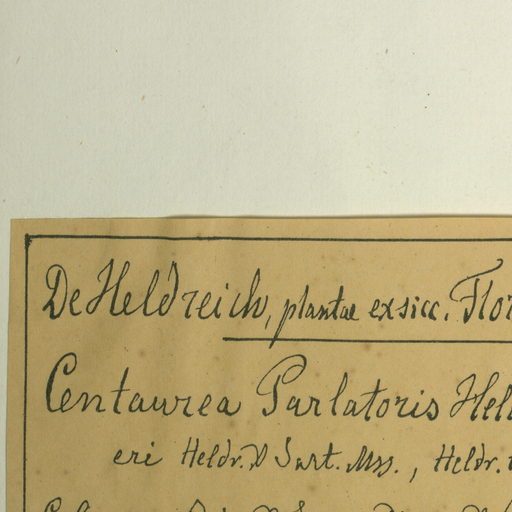 De Heldreich, plantae exsicc. Flor
Centaurea Parlatoris Hel
eri Heldr. & Sart. Mss., Heldr.